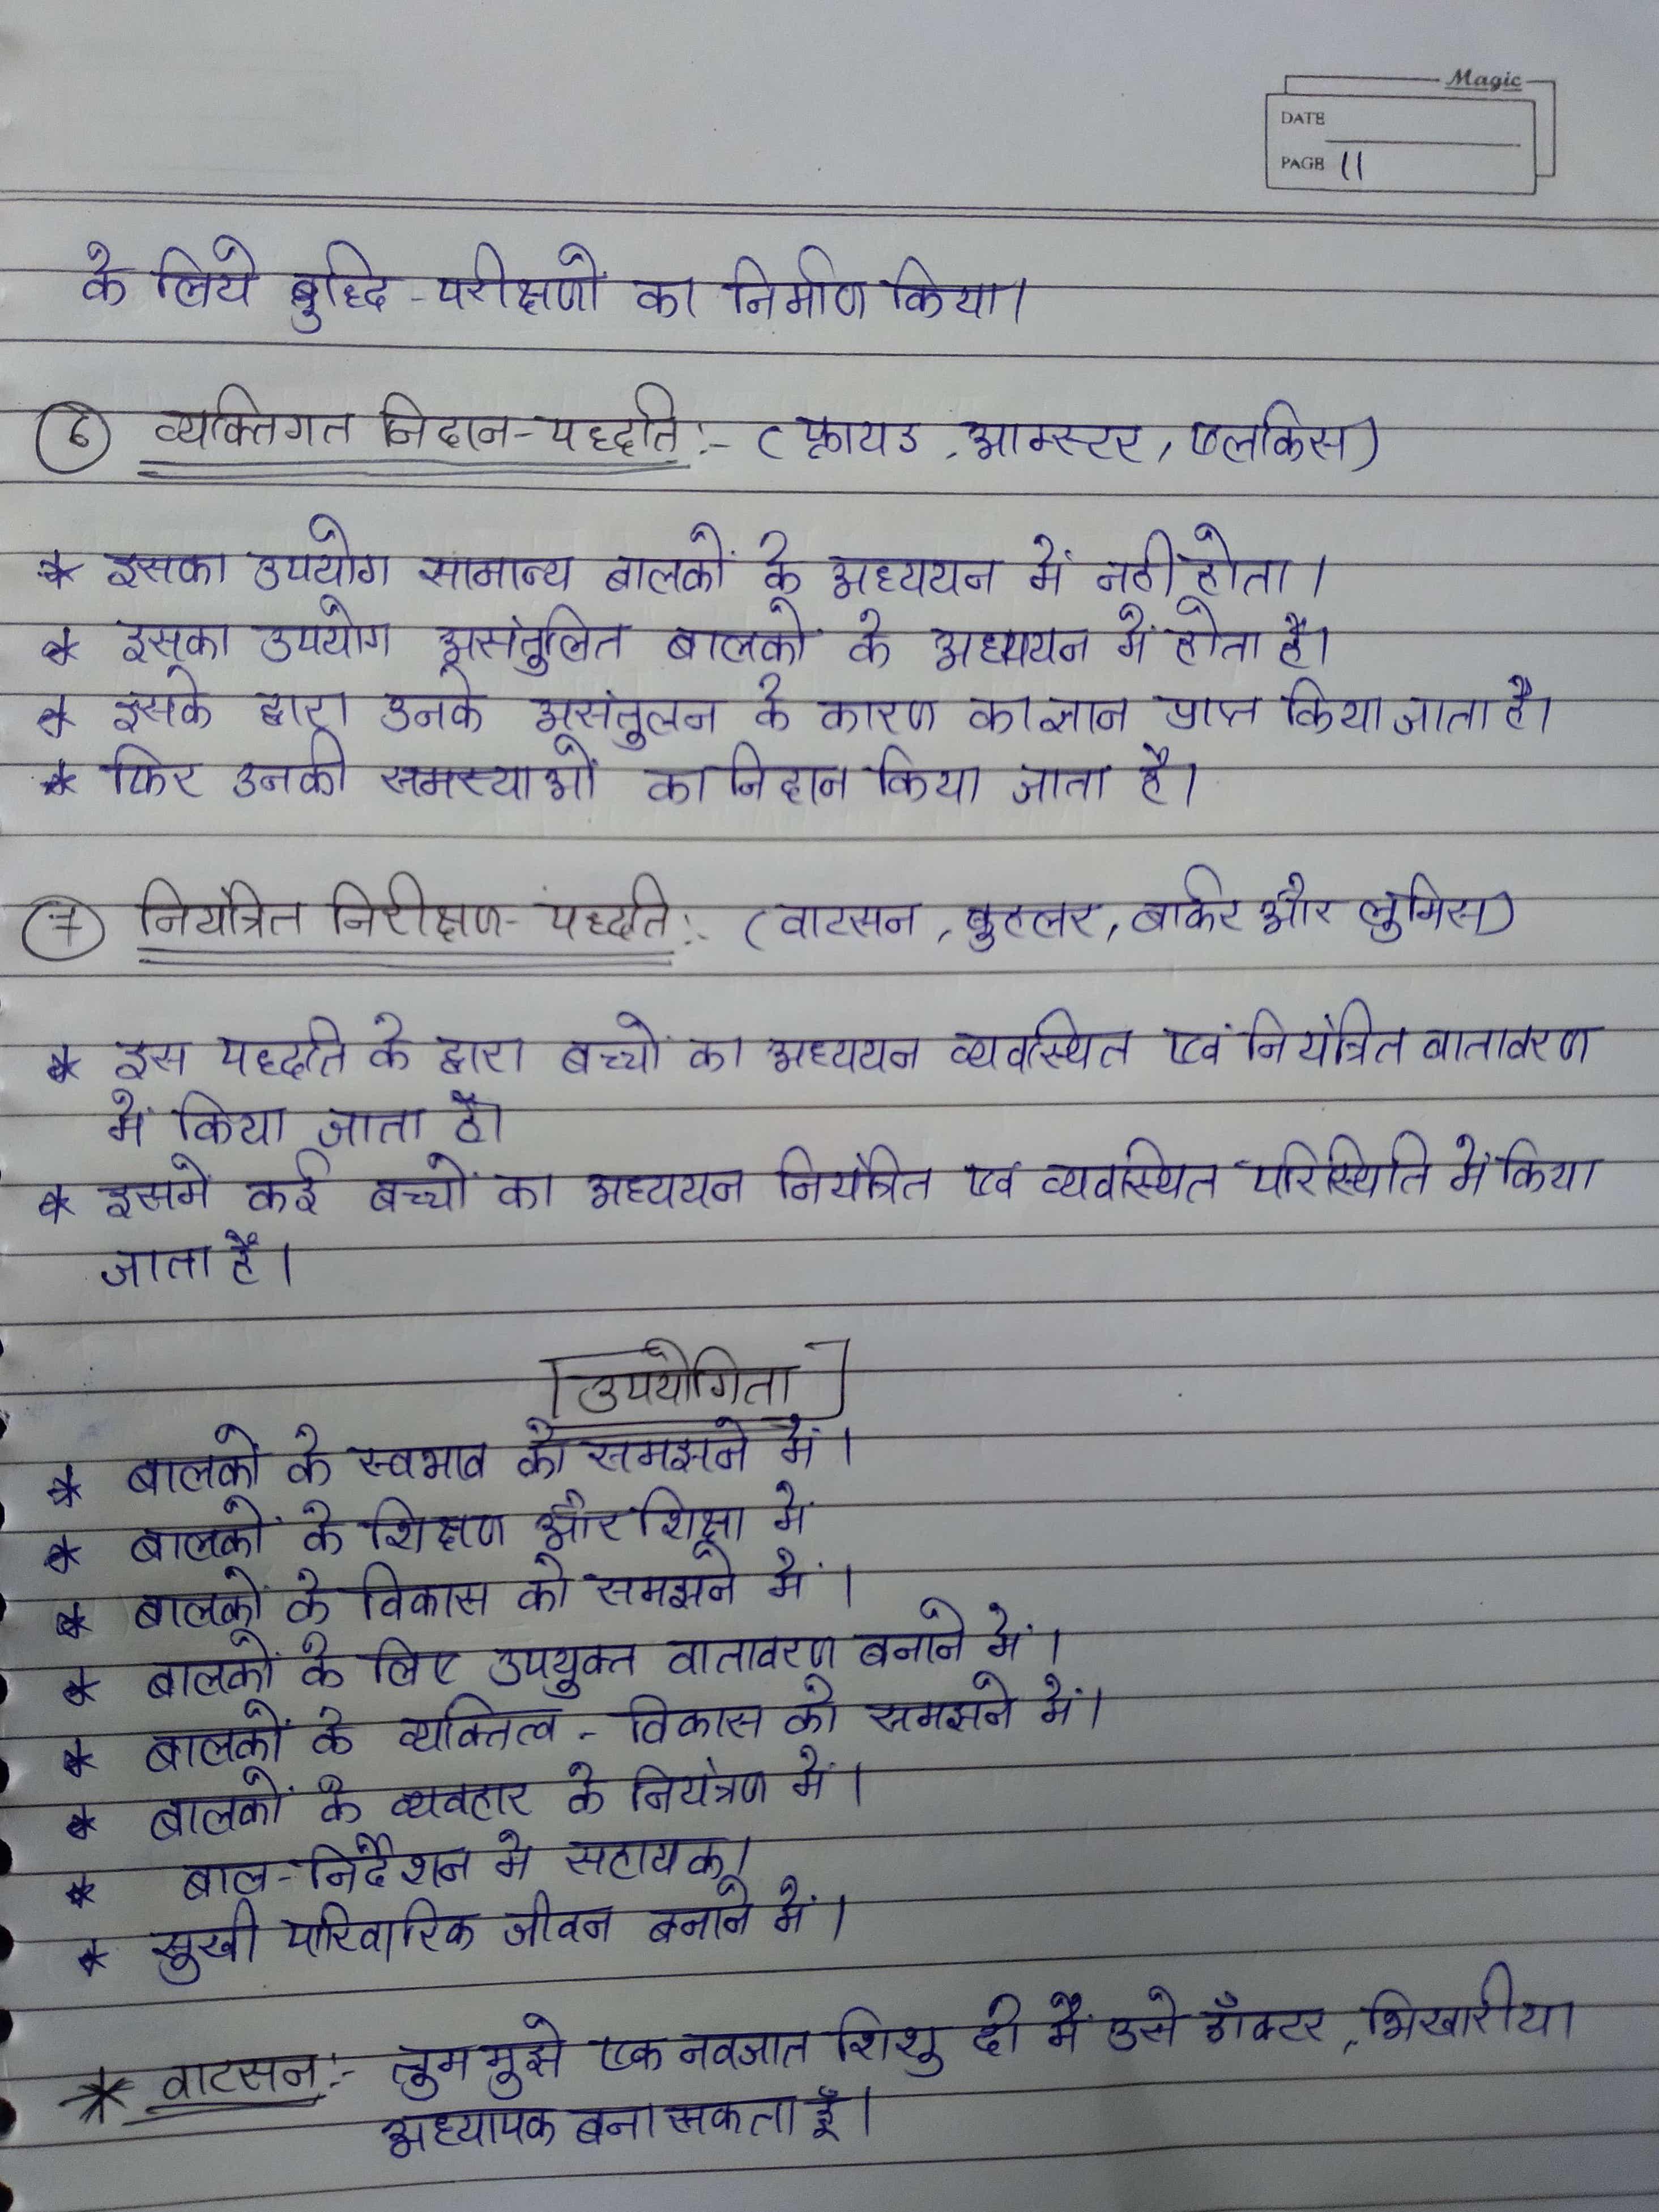 Magic
DATE
PAGE 11
के लिये बुध्दि-परीक्षणों का निर्माण किया।
6 व्यक्तिगत निदान-पध्दति:- (फ्रायड, आमस्टर, एलकिस)
* इसका उपयोग सामान्य बालकों के अध्ययन में नही होता।
* इसका उपयोग असंतुलित बालकों के अध्ययन में होता है।
* इसके द्वारा उनके असंतुलन के कारण का ज्ञान प्राप्त किया जाता है।
* फिर उनकी समस्याओं का निदान किया जाता है।
7 नियंत्रित निरीक्षण-पध्दति:- (वाटसन, बुहलर, बार्कर और लुमिस)
* इस पध्दति के द्वारा बच्चों का अध्ययन व्यवस्थित एवं नियंत्रित वातावरण
में किया जाता है।
* इसमें कई बच्चों का अध्ययन नियंत्रित एवं व्यवस्थित परिस्थिति में किया
जाता है।
उपयोगिता
* बालकों के स्वभाव को समझने में।
* बालकों के शिक्षण और शिक्षा में
* बालकों के विकास को समझने में।
* बालकों के लिए उपयुक्त वातावरण बनाने में।
* बालकों के व्यक्तित्व - विकास को समझने में।
* बालकों के व्यवहार के नियंत्रण में।
* बाल-निर्देशन में सहायक।
* सुखी पारिवारिक जीवन बनाने में।
* वाटसन:- तुम मुझे एक नवजात शिशु दो मैं उसे डॉक्टर, भिखारी या
अध्यापक बना सकता हूँ।